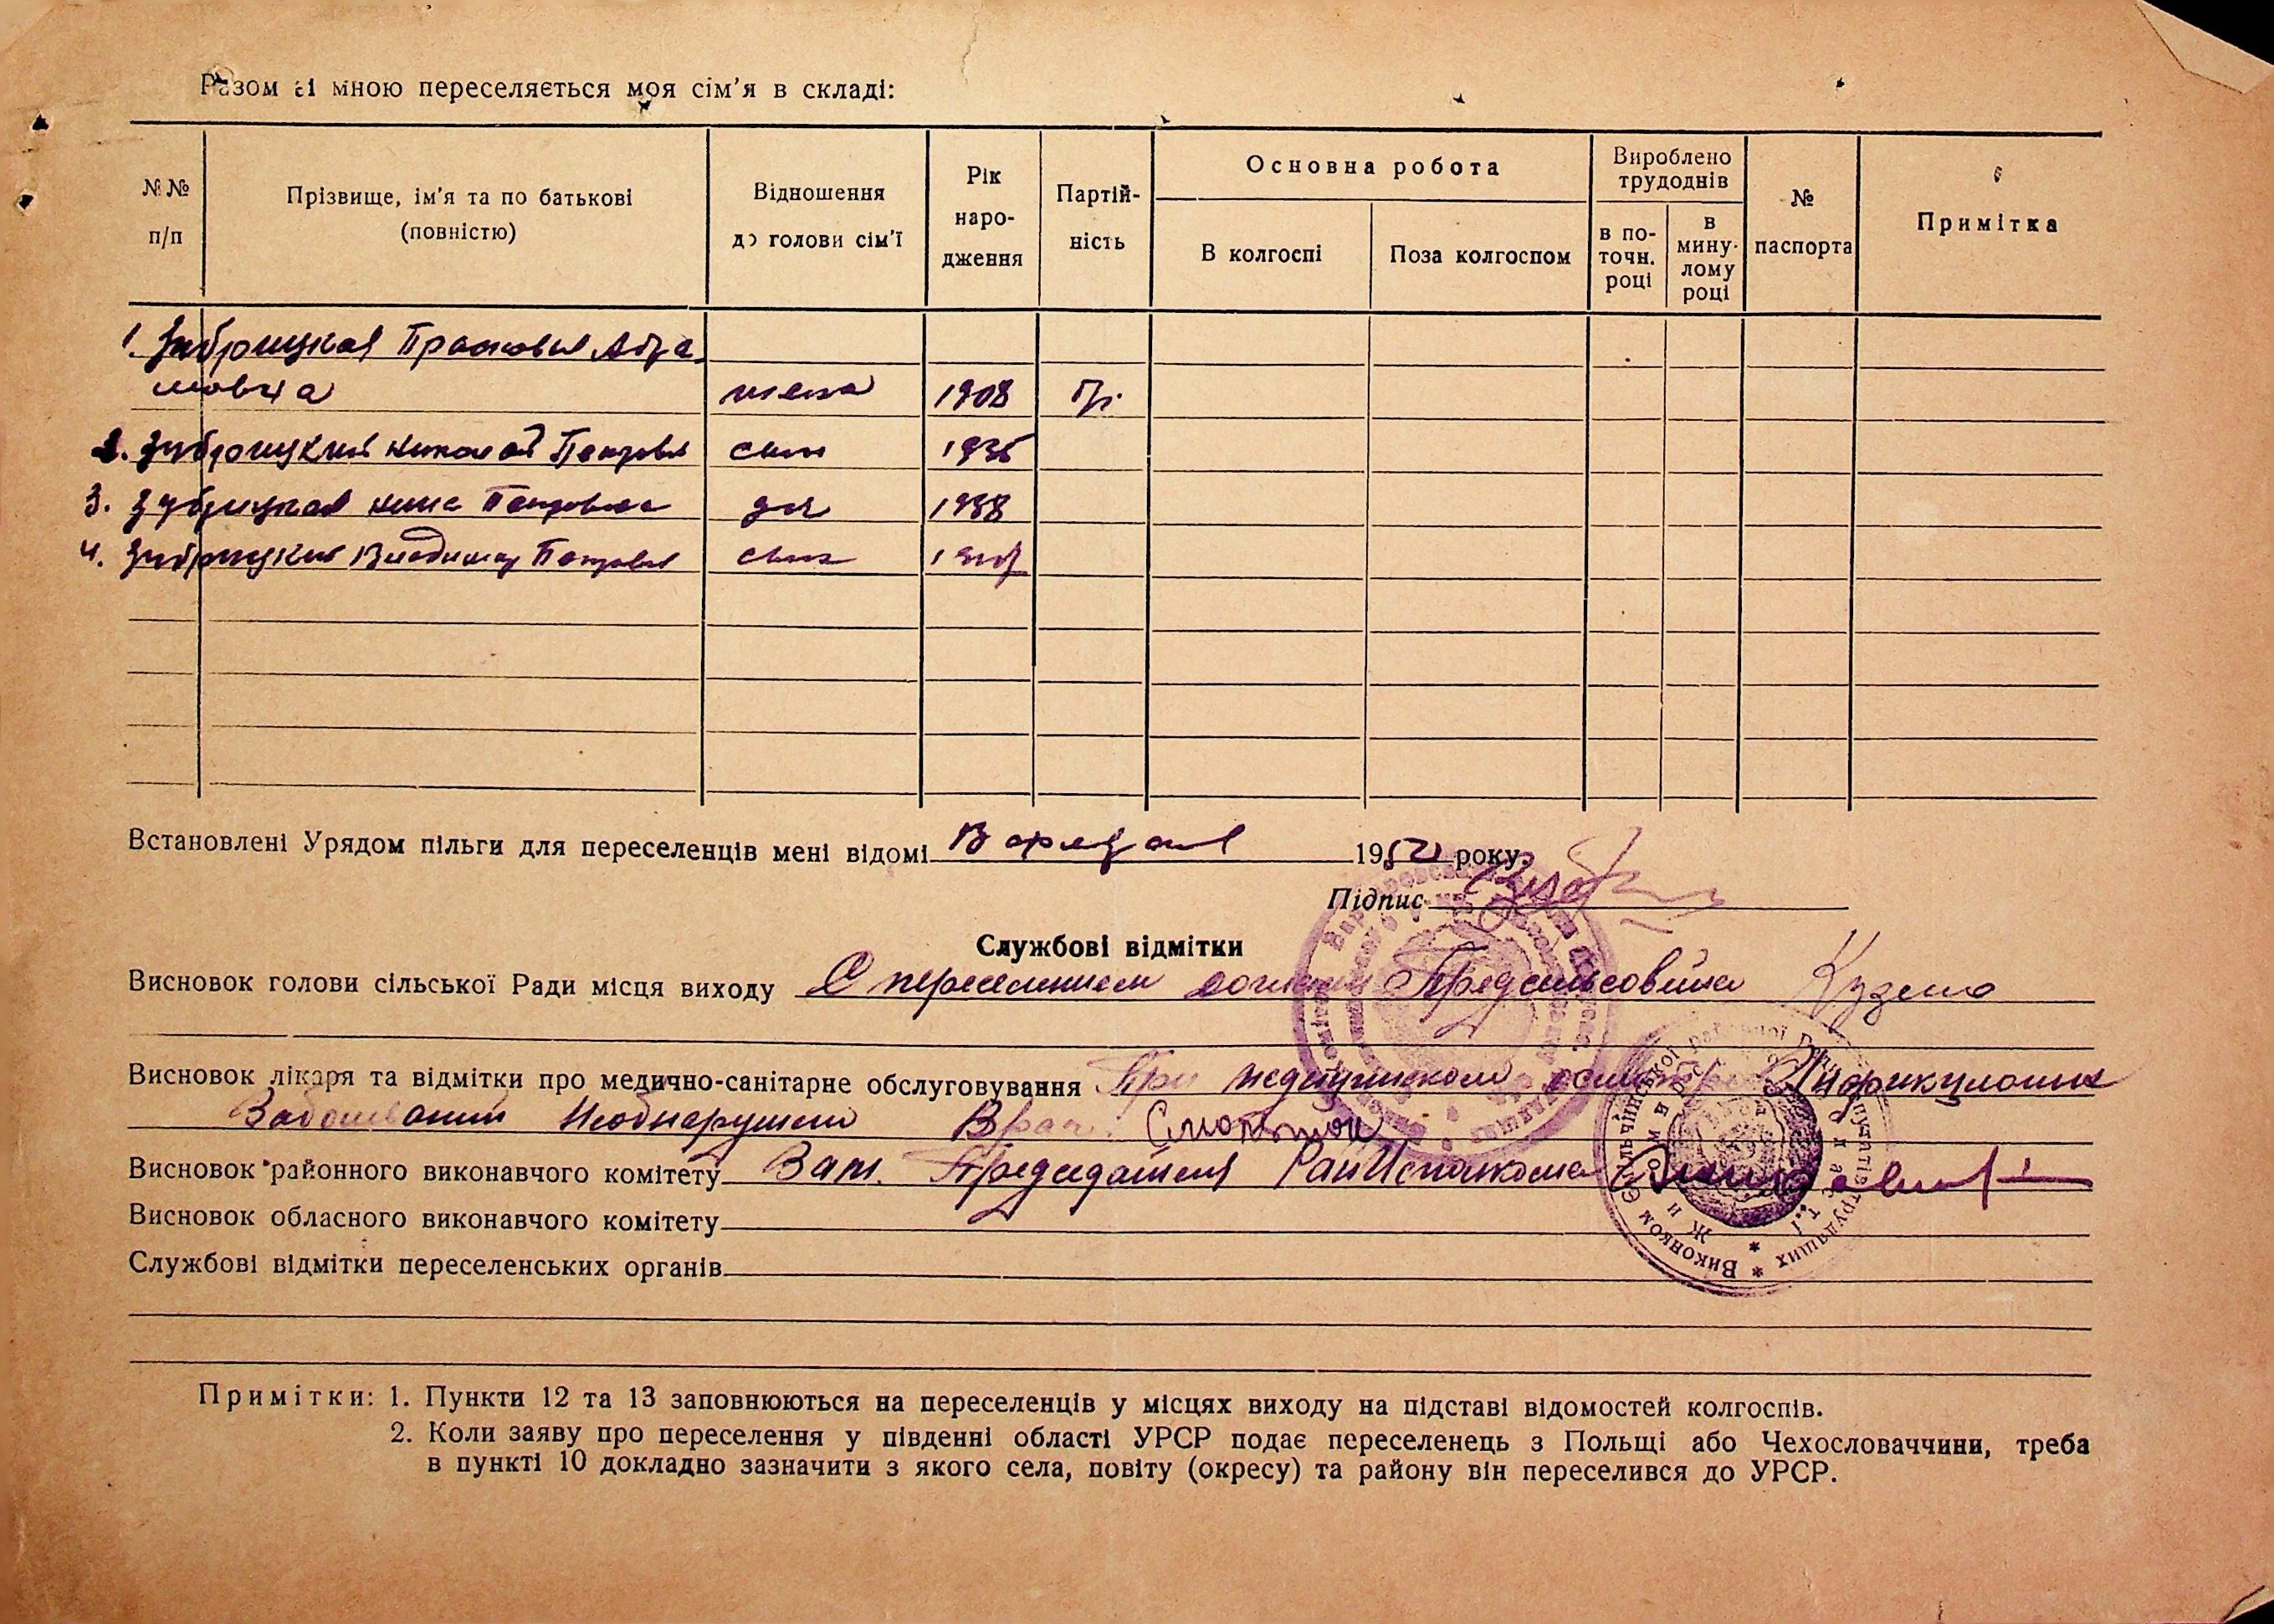 Разом зі мною переселяється моя сім'я в складі:
№№ п/п
Прізвище, ім'я та по батькові (повністю)
Відношення до голови сім'ї
Рік народження
Партійність
Основна робота
В колгоспі
Поза колгоспом
Вироблено трудоднів
в поточн. році
в минулому році
№ паспорта
Примітка
1. Зубрицкая Прасковья Абра
мовна жена 1908 б/п.
2. Зубрицкий Николай Петрович сын 1935
3. Зубрицкая Нина Петровна доч 1938
4. Зубрицкий Владимир Петрович сын
Встановлені Урядом пільги для переселенців мені відомі 1952 року.
Підпис
Службові відмітки
Висновок голови сільської Ради місця виходу С переселением Предсельсовета
Висновок лікаря та відмітки про медично-санітарне обслуговування При медицинском осмотре Инфекционных
Заболеваний Необнаружено Врач:
Висновок районного виконавчого комітету Зам. Председателя РайИсполкома
Висновок обласного виконавчого комітету
Службові відмітки переселенських органів
Примітки: 1. Пункти 12 та 13 заповнюються на переселенців у місцях виходу на підставі відомостей колгоспів.
2. Коли заяву про переселення у південні області УРСР подає переселенець з Польщі або Чехословаччини, треба
в пункті 10 докладно зазначити з якого села, повіту (окресу) та району він переселився до УРСР.